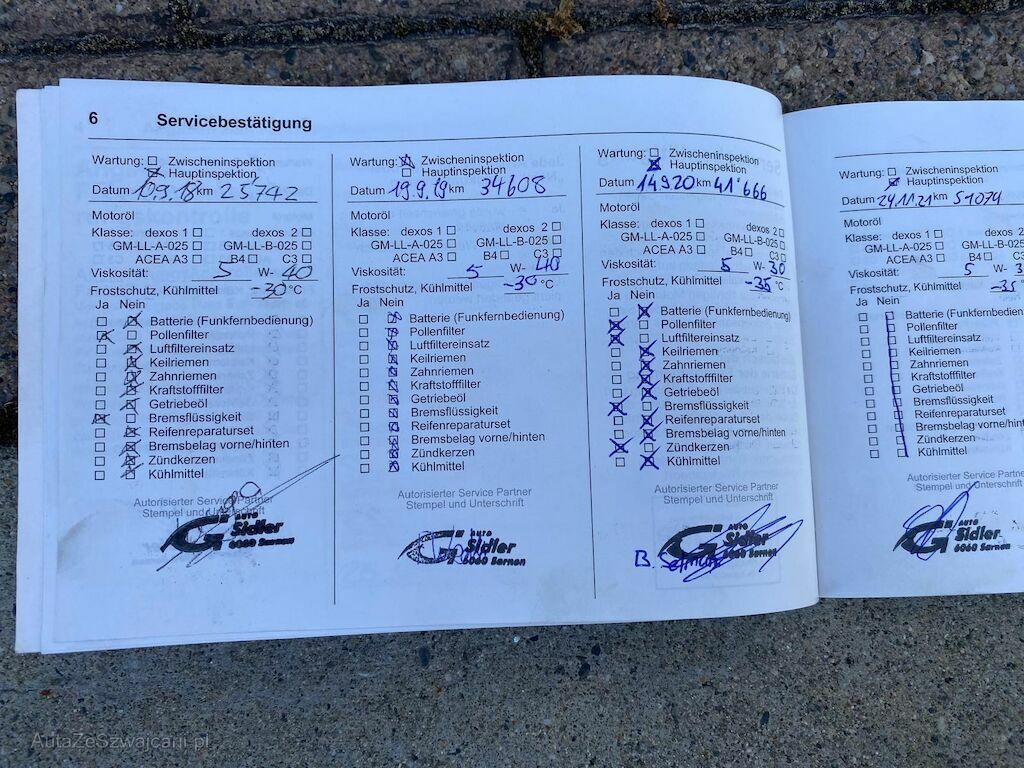 6 Servicebestätigung
Wartung: Zwischeninspektion
Hauptinspektion
Datum 10.9.18 km 25742
Motoröl
Klasse: dexos 1 dexos 2
GM-LL-A-025 GM-LL-B-025
ACEA A3 B4 C3
Viskosität: 5 W- 40
Frostschutz, Kühlmittel -30 °C
Ja Nein
Batterie (Funkfernbedienung)
Pollenfilter
Luftfiltereinsatz
Keilriemen
Zahnriemen
Kraftstofffilter
Getriebeöl
Bremsflüssigkeit
Reifenreparaturset
Bremsbelag vorne/hinten
Zündkerzen
Kühlmittel
Autorisierter Service Partner
Stempel und Unterschrift
AUTO
Sidler
6060 Sarnen
Wartung: Zwischeninspektion
Hauptinspektion
Datum 19.9.19 km 34608
Motoröl
Klasse: dexos 1 dexos 2
GM-LL-A-025 GM-LL-B-025
ACEA A3 B4 C3
Viskosität: 5 W- 40
Frostschutz, Kühlmittel -30 °C
Ja Nein
Batterie (Funkfernbedienung)
Pollenfilter
Luftfiltereinsatz
Keilriemen
Zahnriemen
Kraftstofffilter
Getriebeöl
Bremsflüssigkeit
Reifenreparaturset
Bremsbelag vorne/hinten
Zündkerzen
Kühlmittel
Autorisierter Service Partner
Stempel und Unterschrift
AUTO
Sidler
6060 Sarnen
Wartung: Zwischeninspektion
Hauptinspektion
Datum 14920 km 41'666
Motoröl
Klasse: dexos 1 dexos 2
GM-LL-A-025 GM-LL-B-025
ACEA A3 B4 C3
Viskosität: 5 W- 30
Frostschutz, Kühlmittel -35 °C
Ja Nein
Batterie (Funkfernbedienung)
Pollenfilter
Luftfiltereinsatz
Keilriemen
Zahnriemen
Kraftstofffilter
Getriebeöl
Bremsflüssigkeit
Reifenreparaturset
Bremsbelag vorne/hinten
Zündkerzen
Kühlmittel
Autorisierter Service Partner
Stempel und Unterschrift
AUTO
Sidler
6060 Sarnen
B.
Wartung: Zwischeninspektion
Hauptinspektion
Datum 24.11.21 km 51074
Motoröl
Klasse: dexos 1
GM-LL-A-025
ACEA A3 B4
Viskosität: 5 W- 3
Frostschutz, Kühlmittel -35
Ja Nein
Batterie (Funkfernbedien
Pollenfilter
Luftfiltereinsatz
Keilriemen
Zahnriemen
Kraftstofffilter
Getriebeöl
Bremsflüssigkeit
Reifenreparaturset
Bremsbelag vorne/hin
Zündkerzen
Kühlmittel
Autorisierter Service Par
Stempel und Unterschr
AUTO
Sidler
6060 Sarnen
AutaZeSzwajcarii.pl